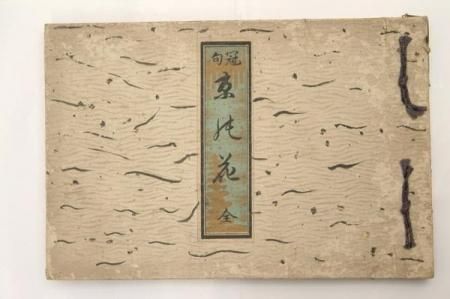 冠句
京能花
全